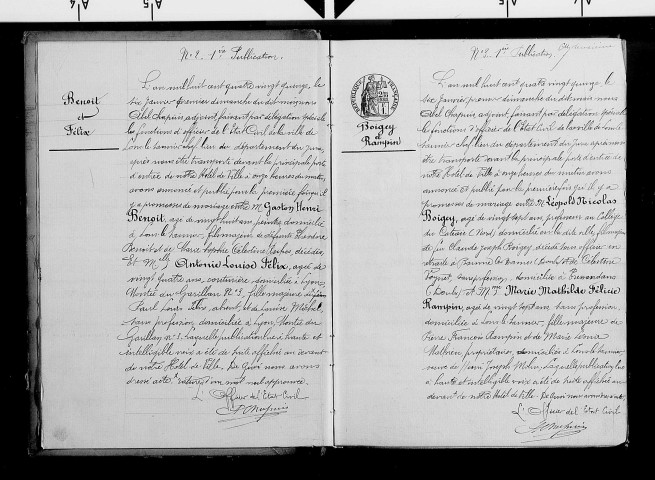 N° 2. 1re Publication.
Benoit
et
Félix
L'an mil huit cent quatre vingt quinze, le
six Janvier premier dimanche du dit mois nous
Abel Chapuis adjoint faisant par délégation spéciale
les fonctions d'officier de l'Etat Civil de la ville de
Lons le Saunier, chef-lieu du département du Jura,
après nous être transporté devant la principale porte
d'entrée de notre Hôtel de Ville à onze heures du matin,
avons annoncé et publié pour la première fois qu'il y
a promesse de mariage entre M. Gaston Henri
Benoit, agé de vingt huit ans, peintre, domicilié
à Lons le Saunier, fils majeur de défunts Théodore
Benoit et de Marie Sophie Célestine décédés
Et Mlle Antonie Louise Félix, agée de
vingt quatre ans, couturière, domiciliée à Lyon,
Montée du Gorillan N° 3, fille majeure de
Paul Louis Félix, absent, et de Louise Michel,
sans profession, domiciliée à Lyon, Montée du
Gorillan n° 3. Laquelle publication lue à haute et
intelligible voix a été de suite affichée au devant
de notre Hôtel de Ville. De Quoi nous avons
dressé acte.
L'Officier de l'Etat Civil
N° 2. 1re Publication
REPUBLIQUE FRANÇAISE
Boigey
et
Rampin
L'an mil huit cent quatre vingt quinze, le
six Janvier premier dimanche du dit mois nous
Abel Chapuis adjoint faisant par délégation spéciale
les fonctions d'officier de l'Etat Civil de la ville de Lons le
Saunier chef lieu du département du Jura, après nous être
transporté devant la principale porte d'entrée de
notre Hôtel de Ville à onze heures du matin avons
annoncé et publié pour la première fois qu'il y a
promesse de mariage entre M. Léopold Nicolas
Boigey, agé de vingt sept ans, professeur au Collège
de domicilié en dite ville, fils majeur
de feu Claude Joseph Boigey décédé
à Baume les Dames (Doubs) et de Célestine
sans profession, domiciliée à
(Doubs) et Mme Marie Mathilde Félicie
Rampin, agée de vingt sept ans, sans profession,
domiciliée à Lons le Saunier, fille majeure de
Pierre François Rampin et de Marie
propriétaires, domiciliés à Lons le Saunier
veuve de Joseph Laquelle publication lue
à haute et intelligible voix a été de suite affichée au
devant de notre Hôtel de Ville. De Quoi nous avons dressé acte.
L'Officier de l'Etat Civil